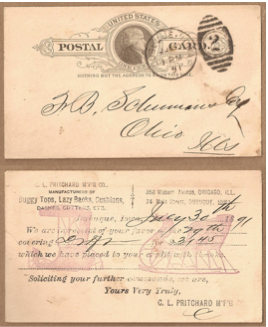 UNITED STATES
POSTAL CARD.
NOTHING BUT THE ADDRESS TO BE ON THIS SIDE.
2
91
F. B. Schumann Esq
Ohio
Ills
C. L. PRITCHARD M'F'G CO.
MANUFACTURERS OF
Buggy Tops, Lazy Backs, Cushions,
DASHES, GETTERS, ETC.
CHICAGO, ILL.
July 30th 1891
We are in receipt of your favor of 29th
covering for $21.45
which we have placed to your credit with thanks.
Soliciting your further commands, we are,
Yours Very Truly,
C. L. PRITCHARD M'F'G CO.